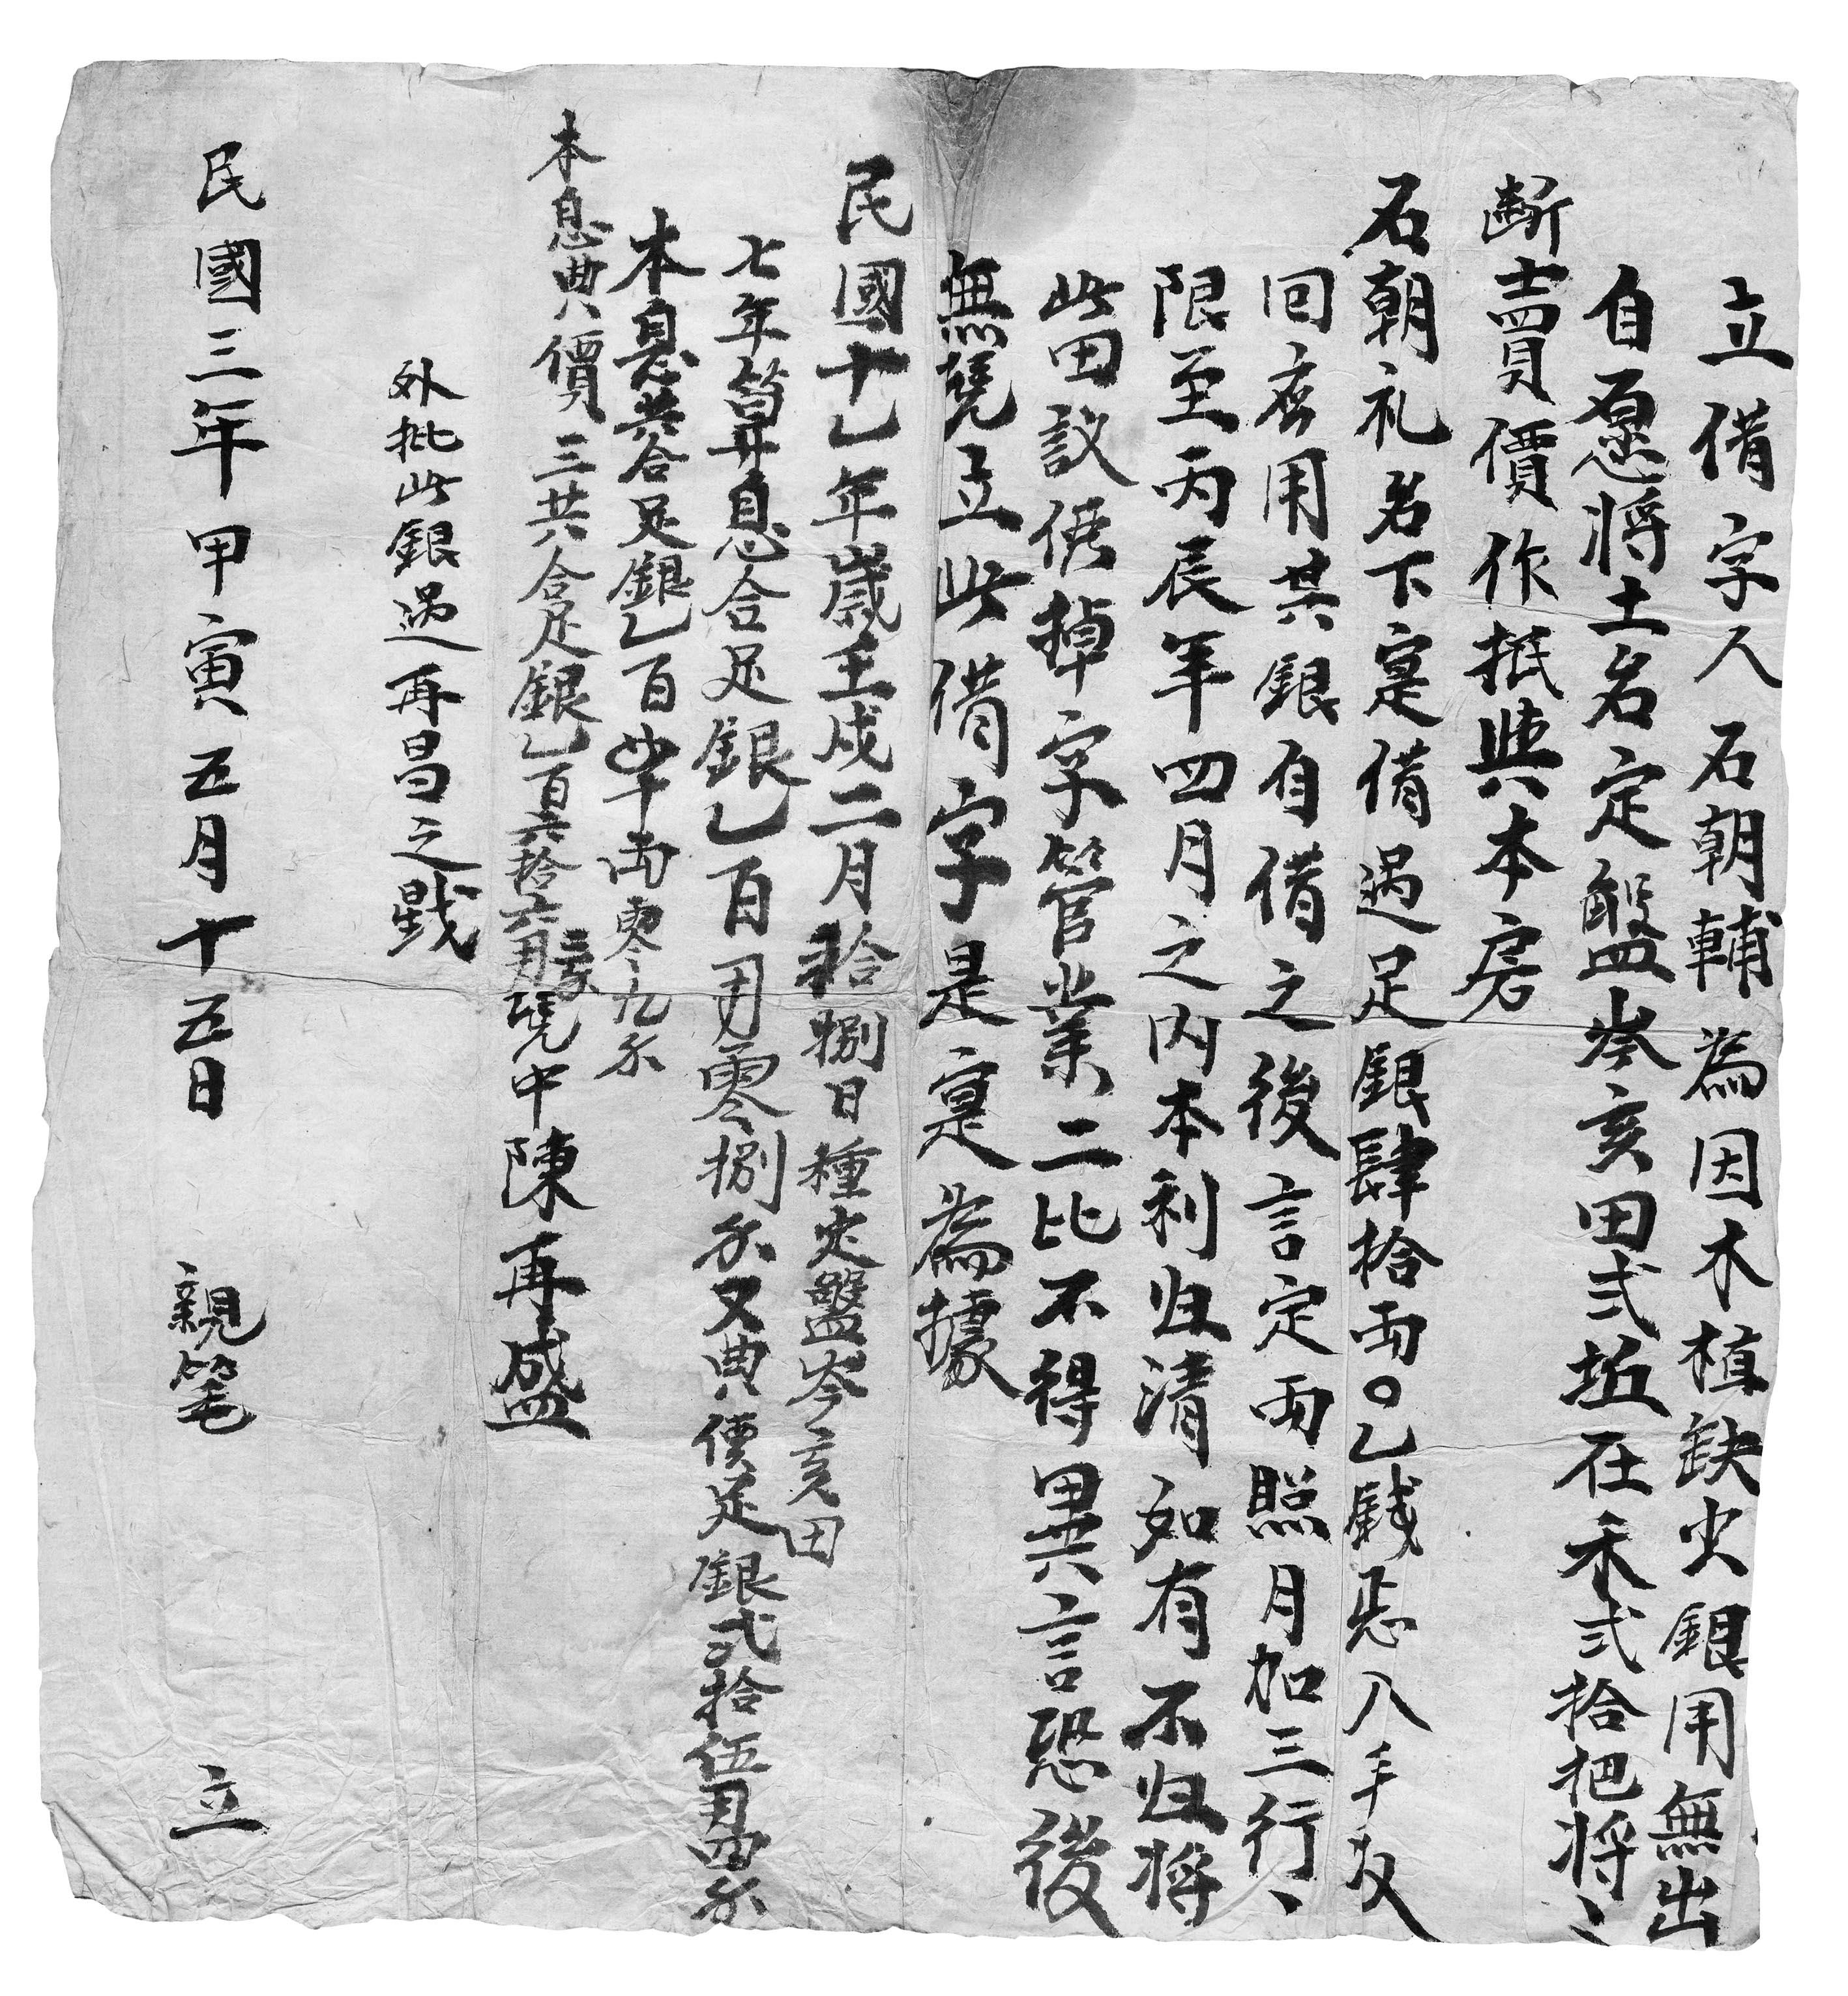 立借字人石朝輔為因木植缺少銀用無出
自愿將土名定盤岑亥田弍坵在禾弍拾把將〻
斷賣價作抵典與本房
石朝礼名下寔借過足銀肆拾両〇乙錢憑入手收
回應用其銀自借之後言定両照月加三行〻
限至丙辰年四月之内本利归清如有不归將
此田議俉掉字管業二比不得異言恐後
無凴立此借字是寔為據
民國十乙年歲壬戌二月拾捌日種定盤岑亥田
七年筭息合足銀乙百零捌又典價足銀弍拾伍
本息共合足銀乙百両零九
本息典價三共合足銀乙百六拾六凴中陳再盛
外批此銀過再昌之戥
民國三年甲寅五月十五日 親笔 立